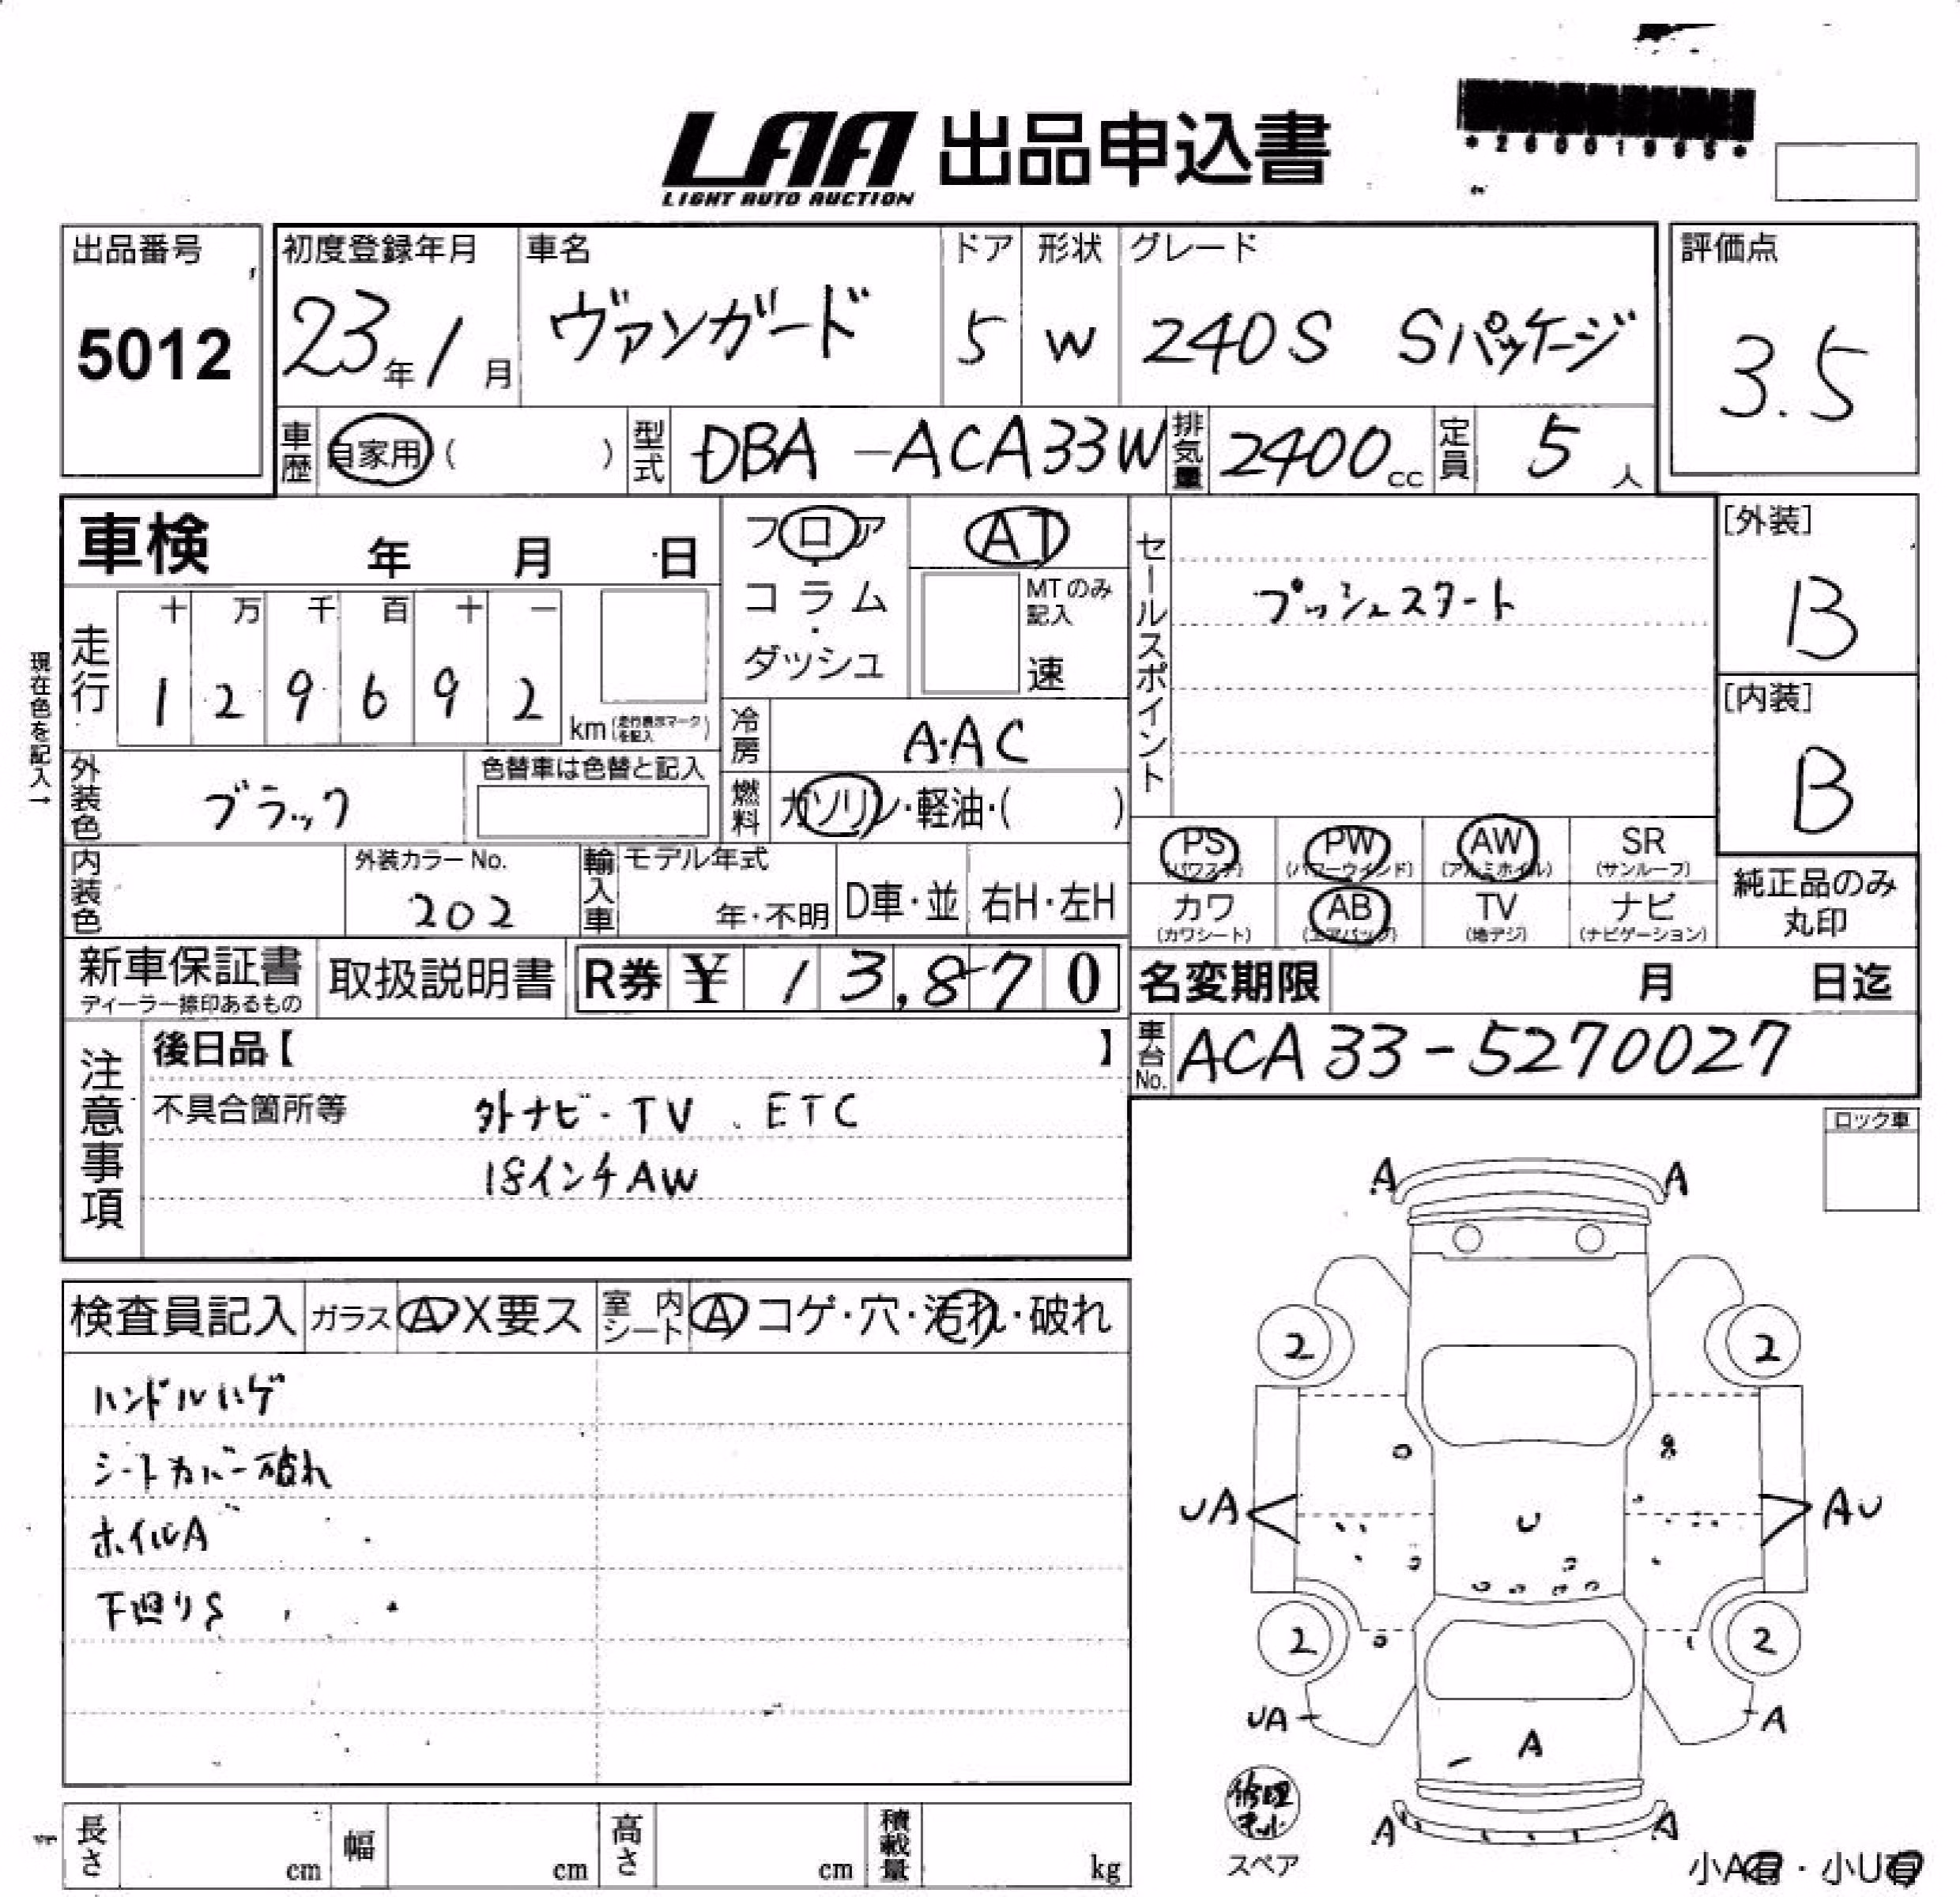 LAA 出品申込書
LIGHT AUTO AUCTION
出品番号
5012
初度登録年月
23年1月
車名
ヴァンガード
ドア
5
形状
W
グレード
240S Sパッケージ
評価点
3.5
車歴
自家用( )
型式
DBA-ACA33W
排気量
2400cc
定員
5人
車検 年 月 日
フロア
コラム
ダッシュ
AT
MTのみ記入
速
セールスポイント
プッシュスタート
[外装]
B
[内装]
B
現在色を記入→
走行
十 万 千 百 十 一
1 2 9 6 9 2
km(走行表示マークを記入)
冷房
A・AC
燃料
ガソリン・軽油・( )
外装色
ブラック
色替車は色替と記入
PS (パワステ)
PW (パワーウインド)
AW (アルミホイル)
SR (サンルーフ)
カワ (カワシート)
AB (エアバッグ)
TV (地デジ)
ナビ (ナビゲーション)
純正品のみ
丸印
内装色
外装カラーNo.
202
輸入車
モデル年式
年・不明
D車・並
右H・左H
新車保証書
ディーラー捺印あるもの
取扱説明書
R券 ¥ 13,870
名変期限 月 日迄
車台No.
ACA33-5270027
注意事項
後日品【 】
不具合箇所等
外ナビ・TV、ETC
18インチAW
ロック車
検査員記入
ガラス
A X要ス
室内シート
A コゲ・穴・汚れ・破れ
ハンドルハゲ
シートカバー破れ
ホイルA
下廻りS
A A
2 2
UA U AU
2 2
UA A A
A A
修理キット
スペア
小A有・小U有
長さ cm
幅 cm
高さ cm
積載量 kg